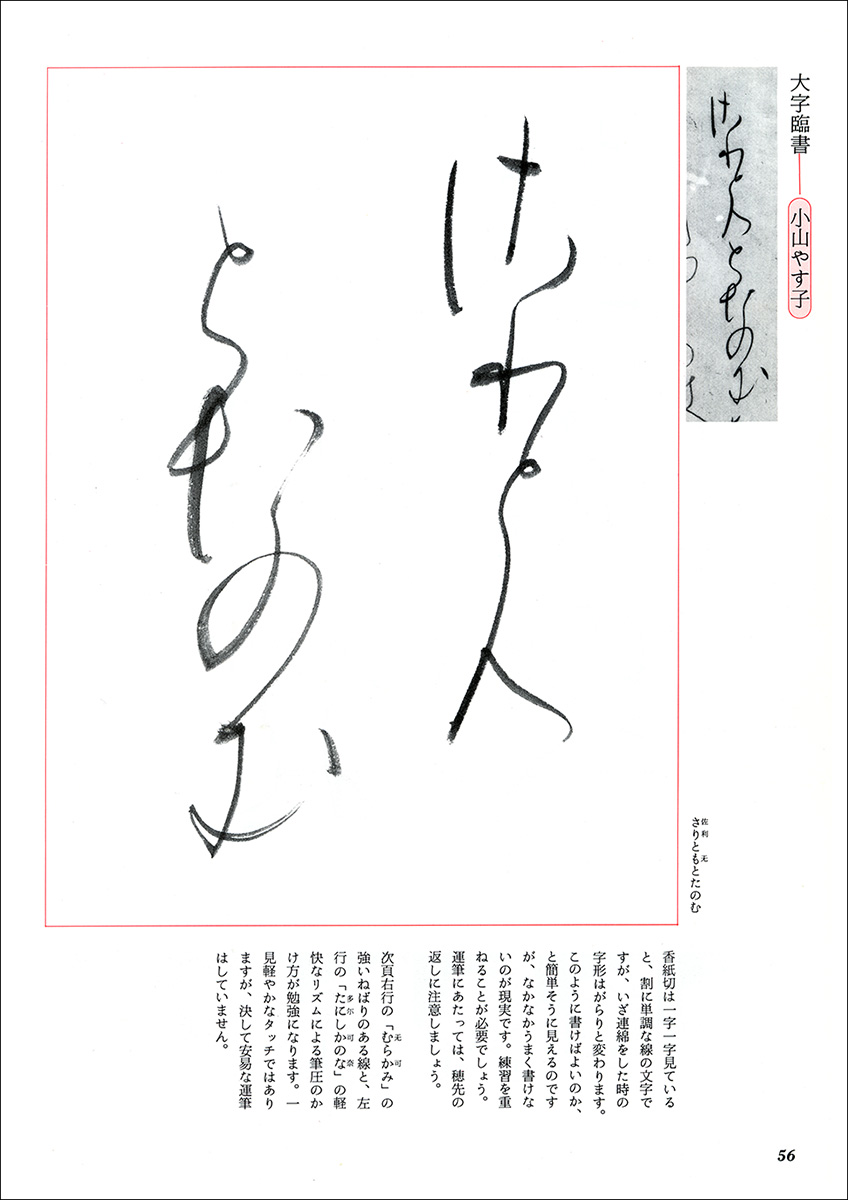 大字臨書――小山やす子
さりともとたのむ
佐利 无
香紙切は一字一字見ている
と、割に単調な線の文字で
すが、いざ連綿をした時の
字形はがらりと変わります。
このように書けばよいのか、
と簡単そうに見えるのです
が、なかなかうまく書けな
いのが現実です。練習を重
ねることが必要でしょう。
運筆にあたっては、穂先の
返しに注意しましょう。
次頁右行の「むらかみ」の
无 可
強いねばりのある線と、左
行の「たにしかのな」の軽
多尓 可 奈
快なリズムによる筆圧のか
け方が勉強になります。一
見軽やかなタッチではあり
ますが、決して安易な運筆
はしていません。
56